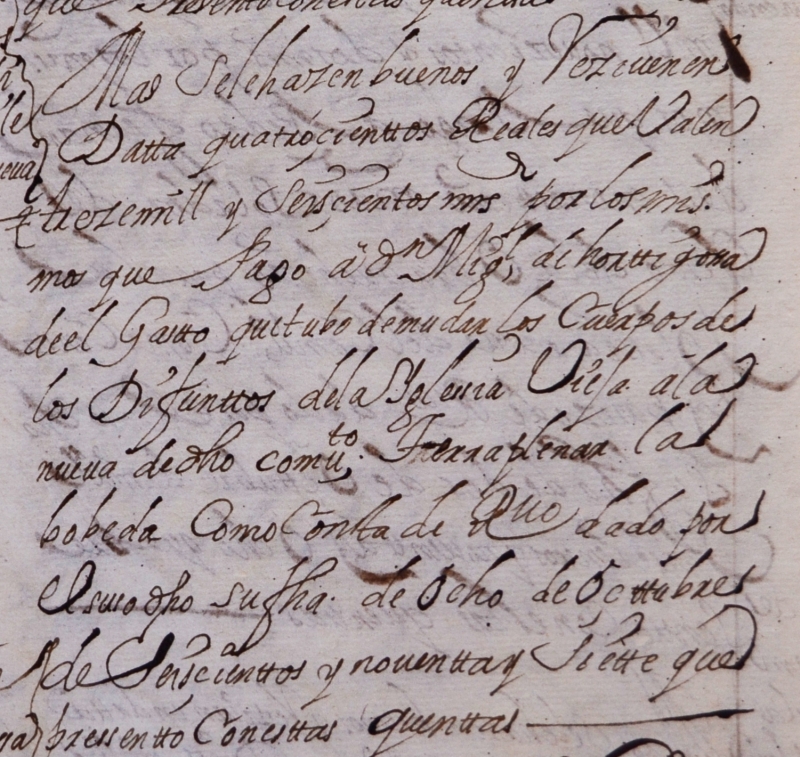 que Presento con estas quentas
Mas Se le hazen buenos y Reziuen en
Datta quatroçienttos Reales que Valen
treze mill y Seisçientos mrs por los mis
mos que Pago â dn Migl, di horttigossa
de el Gastto que tubo de mudar los Cuerpos de
los Difunttos de la Yglesia Vieja a la
nueva de dho combto, Y terraplenar la
bobeda Como Consta de Rvo dado por
el suso dho su fha. de ôcho de Octtubre
de Seisçienttos y noventta y Siette que
pressentto Con esttas quenttas